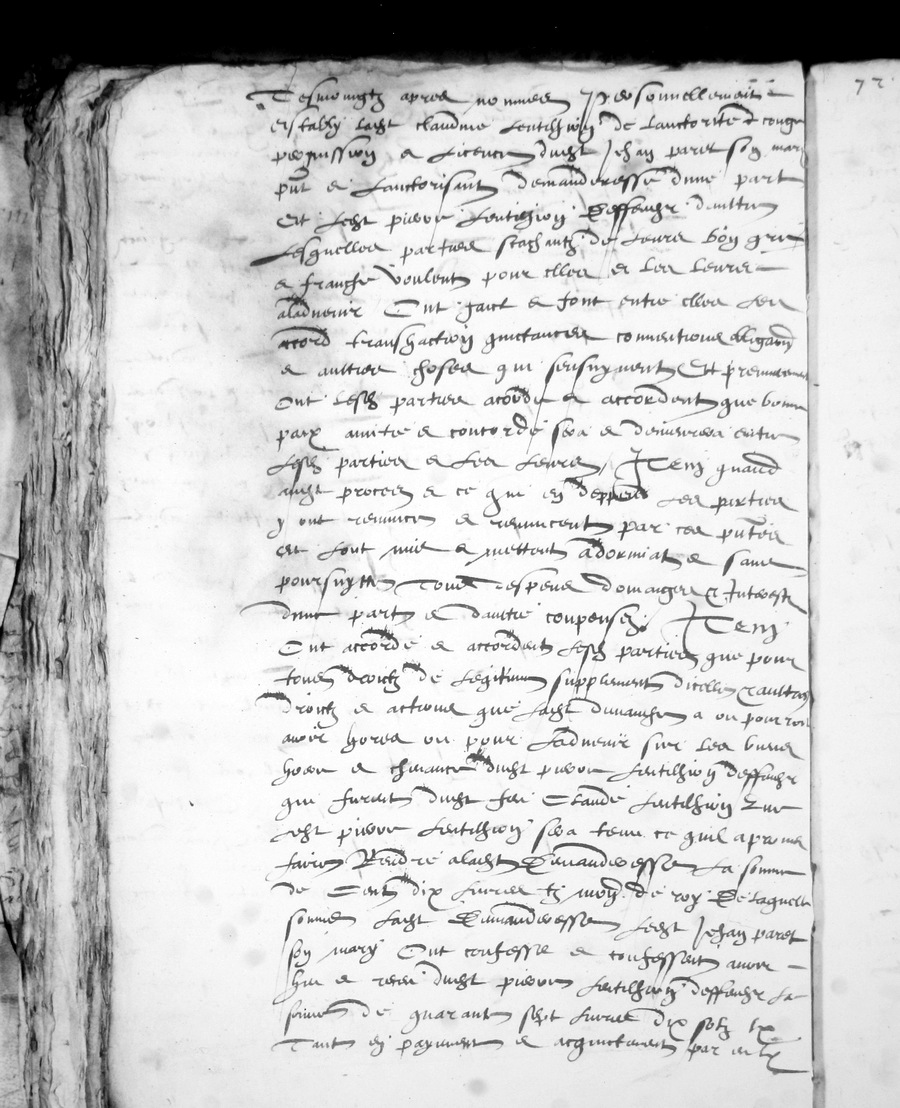 72
Tesmoingtz apres nommes personnellement
estably ladt claudine Lentilhion de lauctorite & conge
permission et licence dudt Jehan paret son mary
pnt et lauctorisant demanderesse dune part
Et ledt pierre Lentilhion deffendr daultre
Lesquelles parties scachantz de leurs bon gre
et franche voulente pour elles et les leurs
aladvenir Ont faict et font entre elles les
accord transhaction quictances conventions
et aultres choses qui sensuyvent Et premierement
Ont lesd parties acorde et accordent que bonne
paix amitie et concorde sera et demeurera entre
lesd parties et les leurs / Item quand
audt proces et ce qui en deppend les parties
y ont renunce et renuncent par ces pntes
et lont mis et mettent adormir et sans
poursuytte Tous despens domaiges & Interestz
dune part et daultre compensez Item
Ont accorde et accordent lesd parties que pour
tous droictz de legitime supplement dicelle & aultres
droictz et actions que ladt a ou pourroit
avoir hores ou pour ladvenir sur les biens
hoirie et chevance dudt pierre Lentilhion deffendr
que furent dudt feu Claude Lentilhion Que
ledt pierre Lentilhion sera tenu ce quil a promis
faire Rendre aladt Demanderesse La somme
de Cent dix livres tz de roy De laquelle
somme ladt Demanderesse ledt Jehan paret
son mary Ont confesse et confessent avoir
heu et receu dudt pierre Lentilhion deffendr la
somme de quarante sept livres dix solz tz
Tant en payement et acquictement par